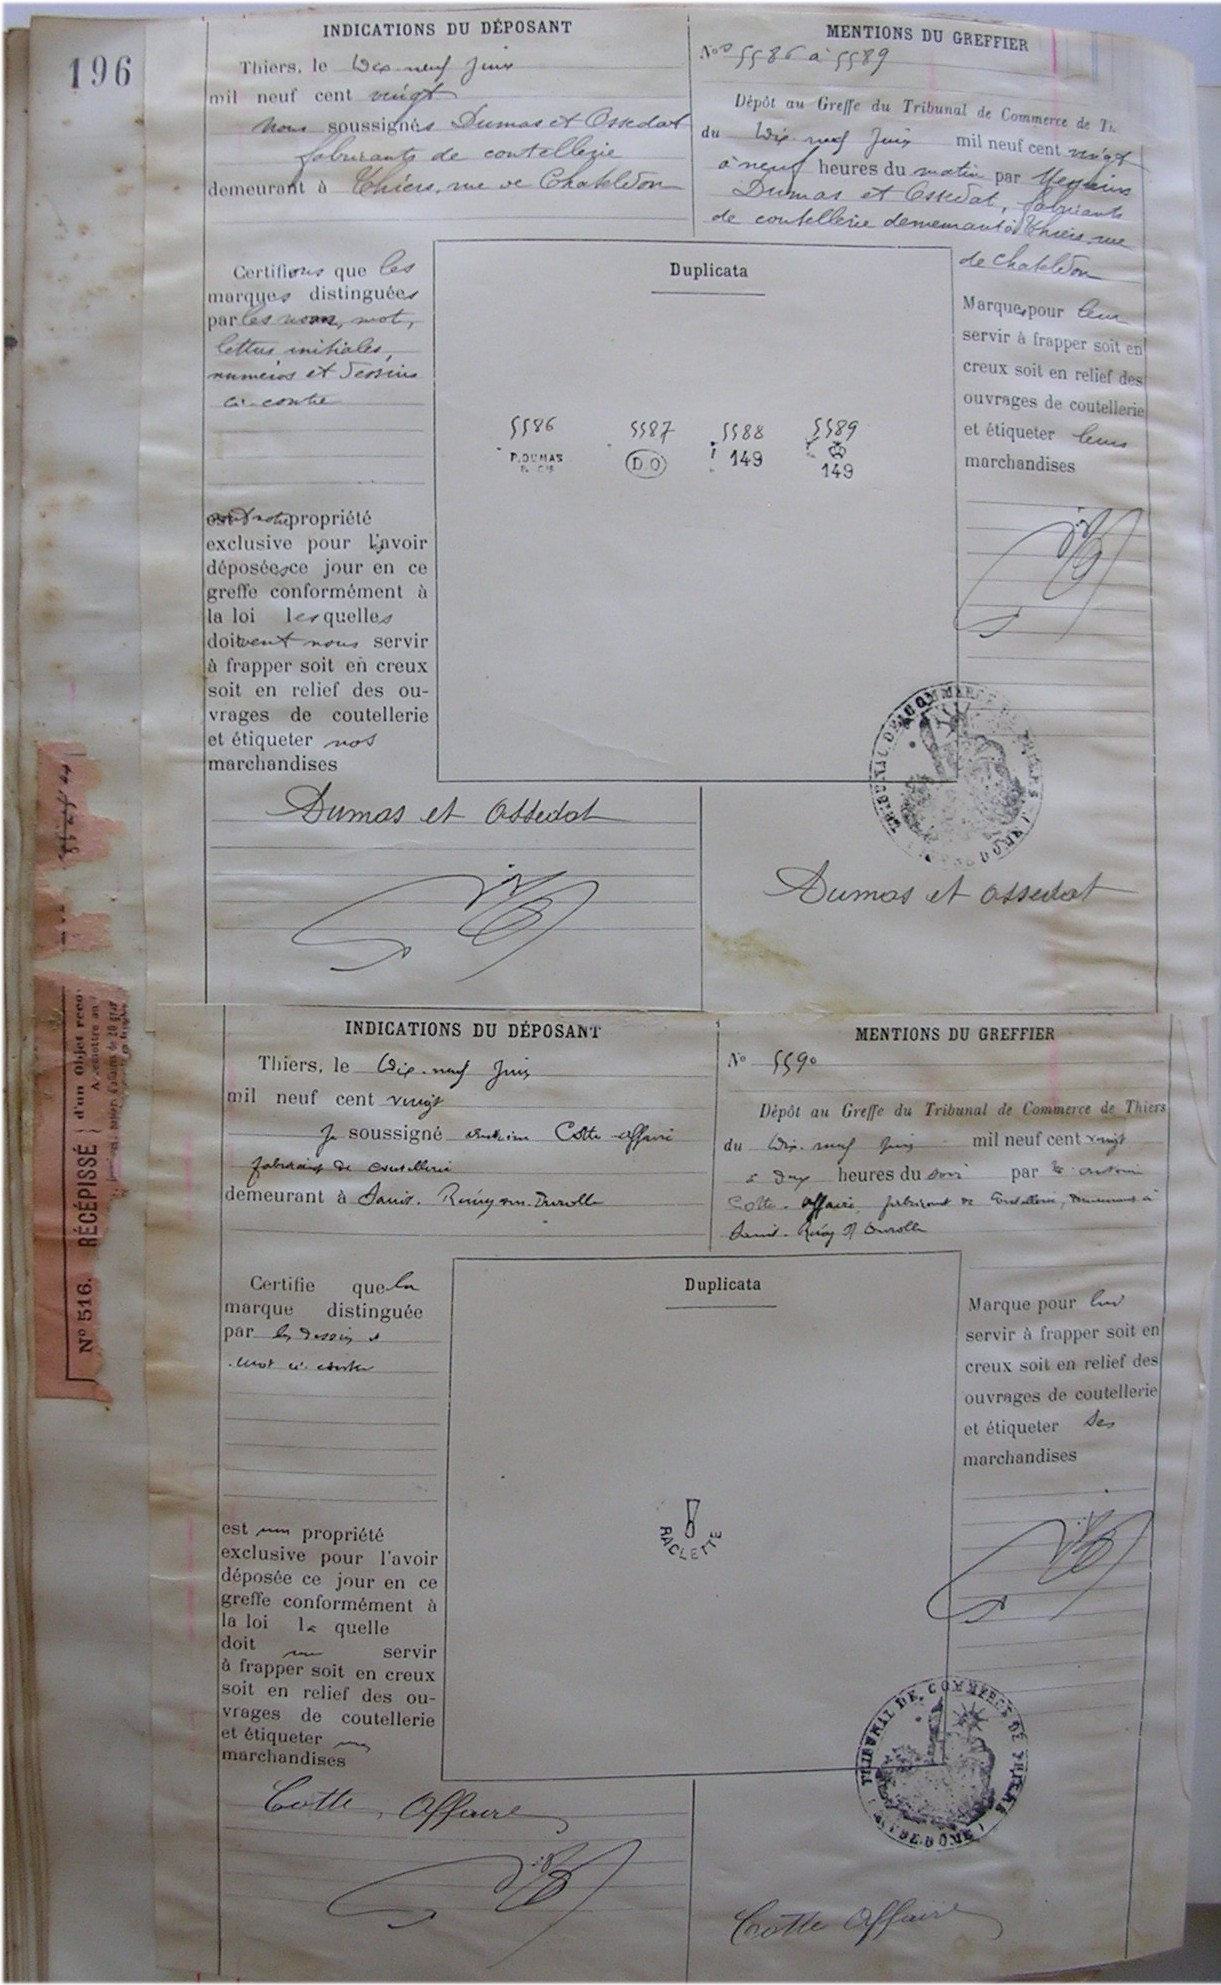 196
INDICATIONS DU DÉPOSANT
Thiers, le Dix neuf Juin
mil neuf cent vingt
Nous soussignés Dumas et Ossedat
fabricants de coutellerie
demeurant à Thiers, rue de Chateldon
MENTIONS DU GREFFIER
Nos 5586 à 5589
Dépôt au Greffe du Tribunal de Commerce de
du Dix neuf Juin mil neuf cent vingt
à neuf heures du matin par Messieurs
Dumas et Ossedat, fabricants
de coutellerie demeurant à Thiers, rue
de Chateldon
Certifions que les
marques distinguées
par les noms, mot,
lettres initiales,
numéros et dessins
ci-contre
propriété
exclusive pour l'avoir
déposées ce jour en ce
greffe conformément à
la loi lesquelles
doivent nous servir
à frapper soit en creux
soit en relief des ou-
vrages de coutellerie
et étiqueter nos
marchandises
Duplicata
5586 5587 5588 5589
P. DUMAS D.O 149 149
Marques pour leur
servir à frapper soit en
creux soit en relief des
ouvrages de coutellerie
et étiqueter leurs
marchandises
TRIBUNAL DE COMMERCE THIERS
Dumas et Ossedat
Dumas et Ossedat
No 516. RÉCÉPISSÉ d'un Objet reco
INDICATIONS DU DÉPOSANT
Thiers, le Dix-neuf Juin
mil neuf cent vingt
Je soussigné Cotte-Affaire
fabricant de coutellerie
demeurant à Saint-Rémy-sur-Durolle
MENTIONS DU GREFFIER
No 5590
Dépôt au Greffe du Tribunal de Commerce de Thiers
du Dix-neuf Juin mil neuf cent vingt
à deux heures du soir par
Cotte-Affaire fabricant de coutellerie, demeurant à
Saint-Rémy s/ Durolle
Certifie que la
marque distinguée
par les dessin et
mot ci-contre
est ma propriété
exclusive pour l'avoir
déposée ce jour en ce
greffe conformément à
la loi laquelle
doit me servir
à frapper soit en creux
soit en relief des ou-
vrages de coutellerie
et étiqueter mes
marchandises
Duplicata
RACLETTE
Marque pour lui
servir à frapper soit en
creux soit en relief des
ouvrages de coutellerie
et étiqueter ses
marchandises
TRIBUNAL DE COMMERCE DE THIERS
Cotte Affaire
Cotte Affaire